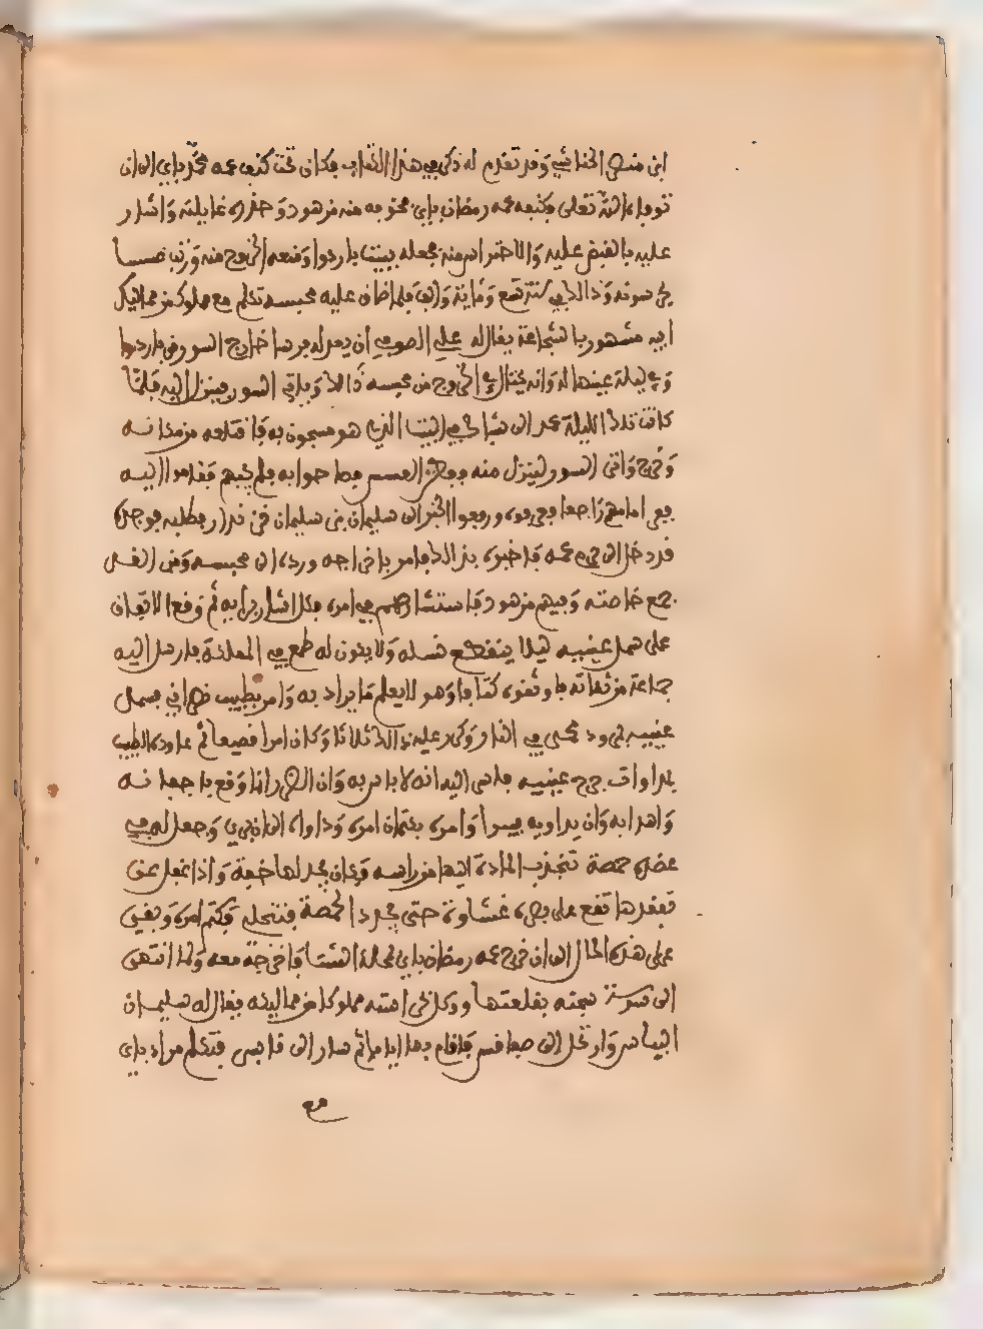 وقد تقدم له ذكر في هذا الكتاب فكان تحت كنف عمه محمد باي الى ان
توفاه الله تعالى فكنفه عمه رمضان باي فخوفه منه مزهود وحذره غايلته واشار
عليه بالقبض عليه والاحتراس منه فجعله ببيت باردوا ومنعه الخروج منه
وذالك في سنة تسع ومائة والف فلما طال عليه محبسه تكلم مع مملوك من مماليك
ابيه مشهور بالشجاعة يقال له علي الصوفي ان يعد له فرسا خارج السور من باردوا
في ليلة عينها له وانه يحتال في الخروج من محبسه ذالك وياتي السور فينزل اليه فلما
كانت تلك الليلة عمد الى شباك في البيت الذي هو مسجون به فاقتلعه من مكانه
وخرج واتى السور لينزل منه العسس فصاحوا به فلم يجبهم فقاموا اليه
ففر امامهم راجعا ورفعوا الخبر الى سليمان بن سليمان فطلبه فوجده
قد دخل الى حرم عمه فاخبره بذالك فامر باخراجه ورده الى محبسه ومن الغد
جمع خاصته وفيهم مزهود فاستشارهم في امره فكل اشار برايه ثم وقع الاتفاق
على سمل عينيه ليلا ينقطع نسله ولا يكون له طمع في المملكة فارسل اليه
جماعة من ثقاته فاوثقوه كتافا وهو لا يعلم ما يراد به وامر بطبيب نصراني فسمل
عينيه بمرود محمى في النار وكرر عليه ذالك ثلاثا وكان امرا فضيعا ثم عاوده الطبيب
بمداوات جرح عينيه فاسر اليه انه لا باس به وان الضرر انما وقع باجفانه
واهدابه وان يداويه فيبرا وامره بكتمان امره وداواه الى ان بري وجعل له في
عضده حمصة تجذب المادة اليها من راسه وكان يجد لها خفة واذا غفل عن
تفقدها تقع على بصره غشاوة حتى يجدد الحمصة فتنجلي وكتم امره وبقي
على هذه الحال الى ان خرج عمه رمضان باي لمحلة الشتا فاخرجه معه ولما انتهى
الى سوسة سجنه بقلعتها ووكل بحراسته مملوكا من مماليكه يقال له سليمان
الياس وارتحل الى صفاقس فاقام بها اياما ثم سار الى قابس فتكلم مراد باي
مع